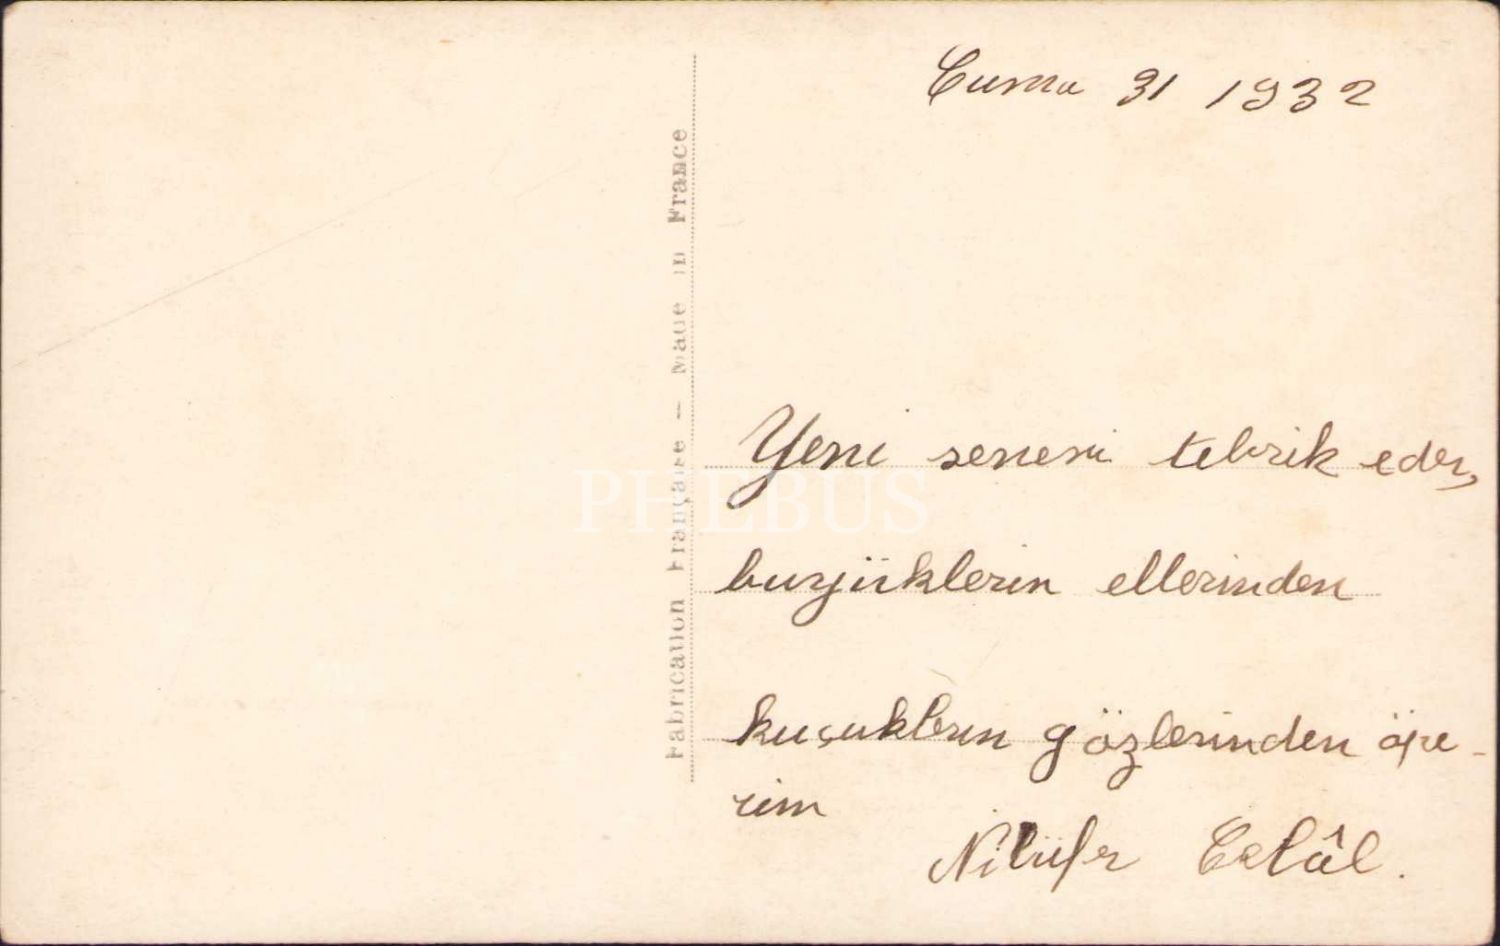 Cuma 31 1932
Fabrication Française — Made in France
PHEBUS
Yeni seneni tebrik eder,
buyüklerin ellerinden
kuçuklerin gözlerinden öpe-
rim
Nilüfer Celâl.